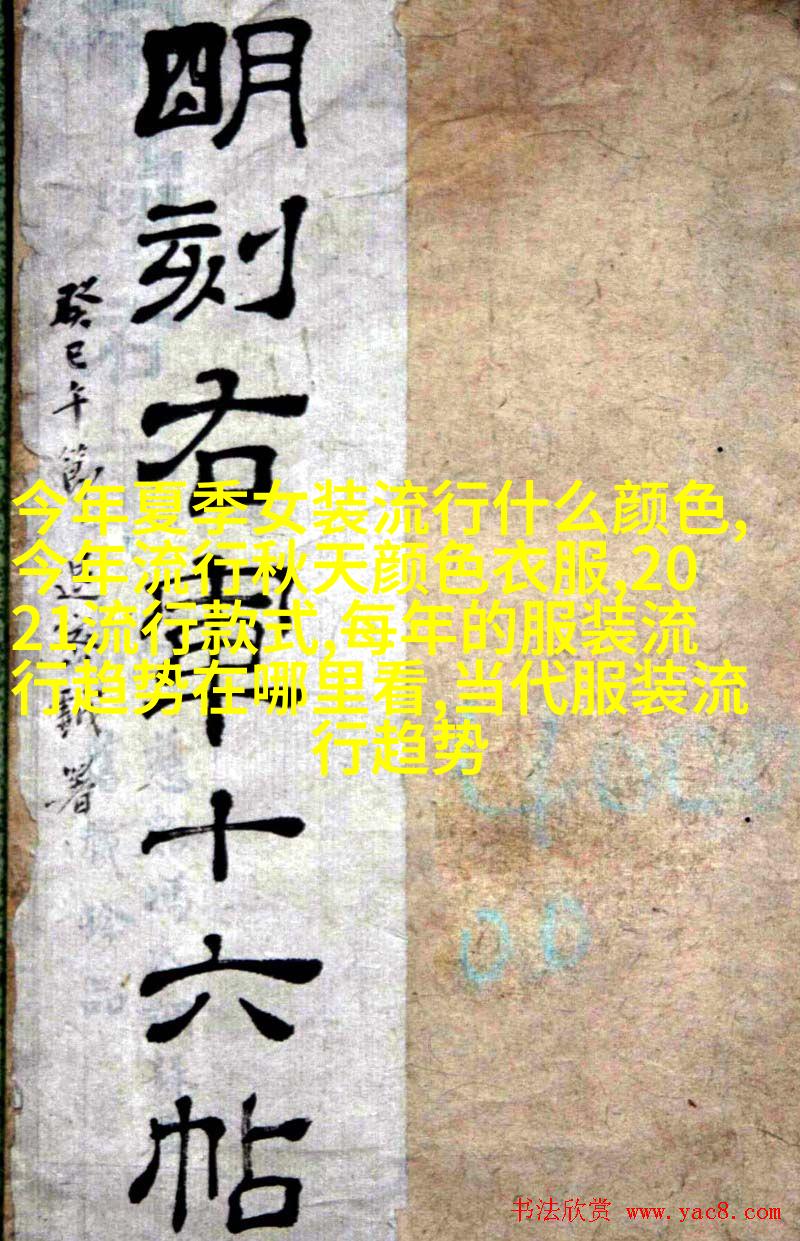 朙刻右軍十六帖
癸巳午節
署
今年夏季女装流行什么颜色,
今年流行秋天颜色衣服,20
21流行款式,每年的服装流
行趋势在哪里看,当代服装流
行趋势
书法欣赏 www.yac8.com